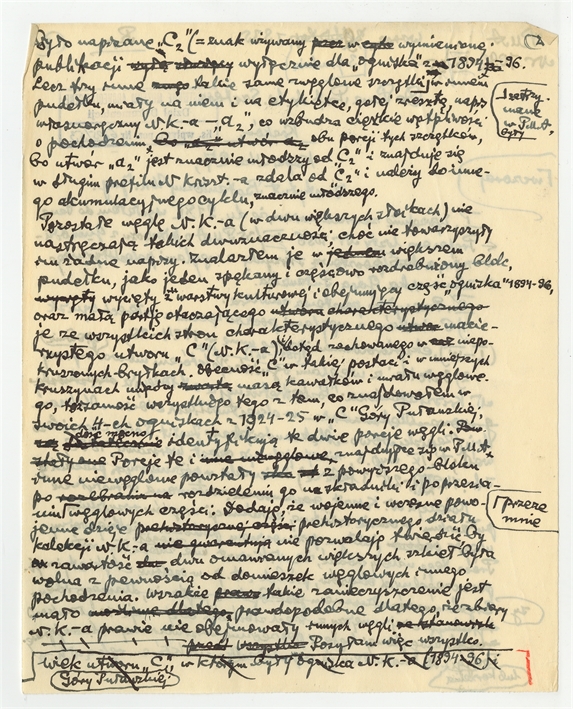 Było napisane „C₂" (= znak używany przez w wymienionej
publikacji wyłącznie dla „ogniska z 1894–96.
Lecz trzy inne takie same zwęglone szczątki, w innem
pudełku, miały na niem i na etykietce, gołej zresztą, napis
własnoręczny N.K-a – „a₂", co wzbudza ciężkie wątpliwości
o pochodzeniu obu porcji tych szczątków,
bo utwór „a₂" jest znacznie młodszy od „C₂" i znajduje się
w długim profilu N. Krzszt.-a zdala od „C₂" i należy do inne-
go akumulacyjnego cyklu, znacznie młodszego.
Pozostałe węgle N.K.-a (w dwu większych słoikach) nie
nastręczają takich dwuznaczności, choć nie towarzyszyły
im żadne napisy. Znalazłem je w większem
pudełku, jako jeden spękany i częściowo rozdrobniony blok,
wycięty z warstwy kulturowej i obejmujący część „ogniska" 1894-96,
oraz małą porcję otaczającego utworu charakterystycznego
je ze wszystkich stron charakterystycznego macie-
rzystego utworu „C" (N.K.-a), dotąd zachowanego w niepo-
kruszonych bryłkach. Obecność „C" w takiej postaci i w mniejszych
kruszynach między masą kawałków i miału węglowe-
go, tożsamość wszystkiego tego z tem, co znajdowałem w
swoich 11-ch ogniskach z 1924-25 w „C" Góry Puławskiej,
dość mocno identyfikują te dwie porcje węgli.
Porcje te i inne niewęglowe, znajdujące się w P.M.A.
inne niewęglowe powstały z powyższego bloku
po rozebraniu na rozdzieleniu go na składniki i poprzesia-
niu węglowych części. Dodaję, że wojenne i wczesne powo-
jenne dzieje prehistorycznego działu
kolekcji N.K.-a nie gwarantują nie pozwalają twierdzić, by
zawartość dwu omawianych większych szkieł była
wolna z pewnością od domieszek węglowych innego
pochodzenia. Wszakże takie zanieczyszczenie jest
mało prawdopodobne dlatego, że zbiory
N.K.-a prawie nie obejmowały innych węgli.
Posyłam więc wszystko.
wiek utworu „C", w którym były ogniska N.K.-a (1894-96) i
Góry Puławskiej
2
i zatrzy-
mane
w P.M.A.
przeze
mnie